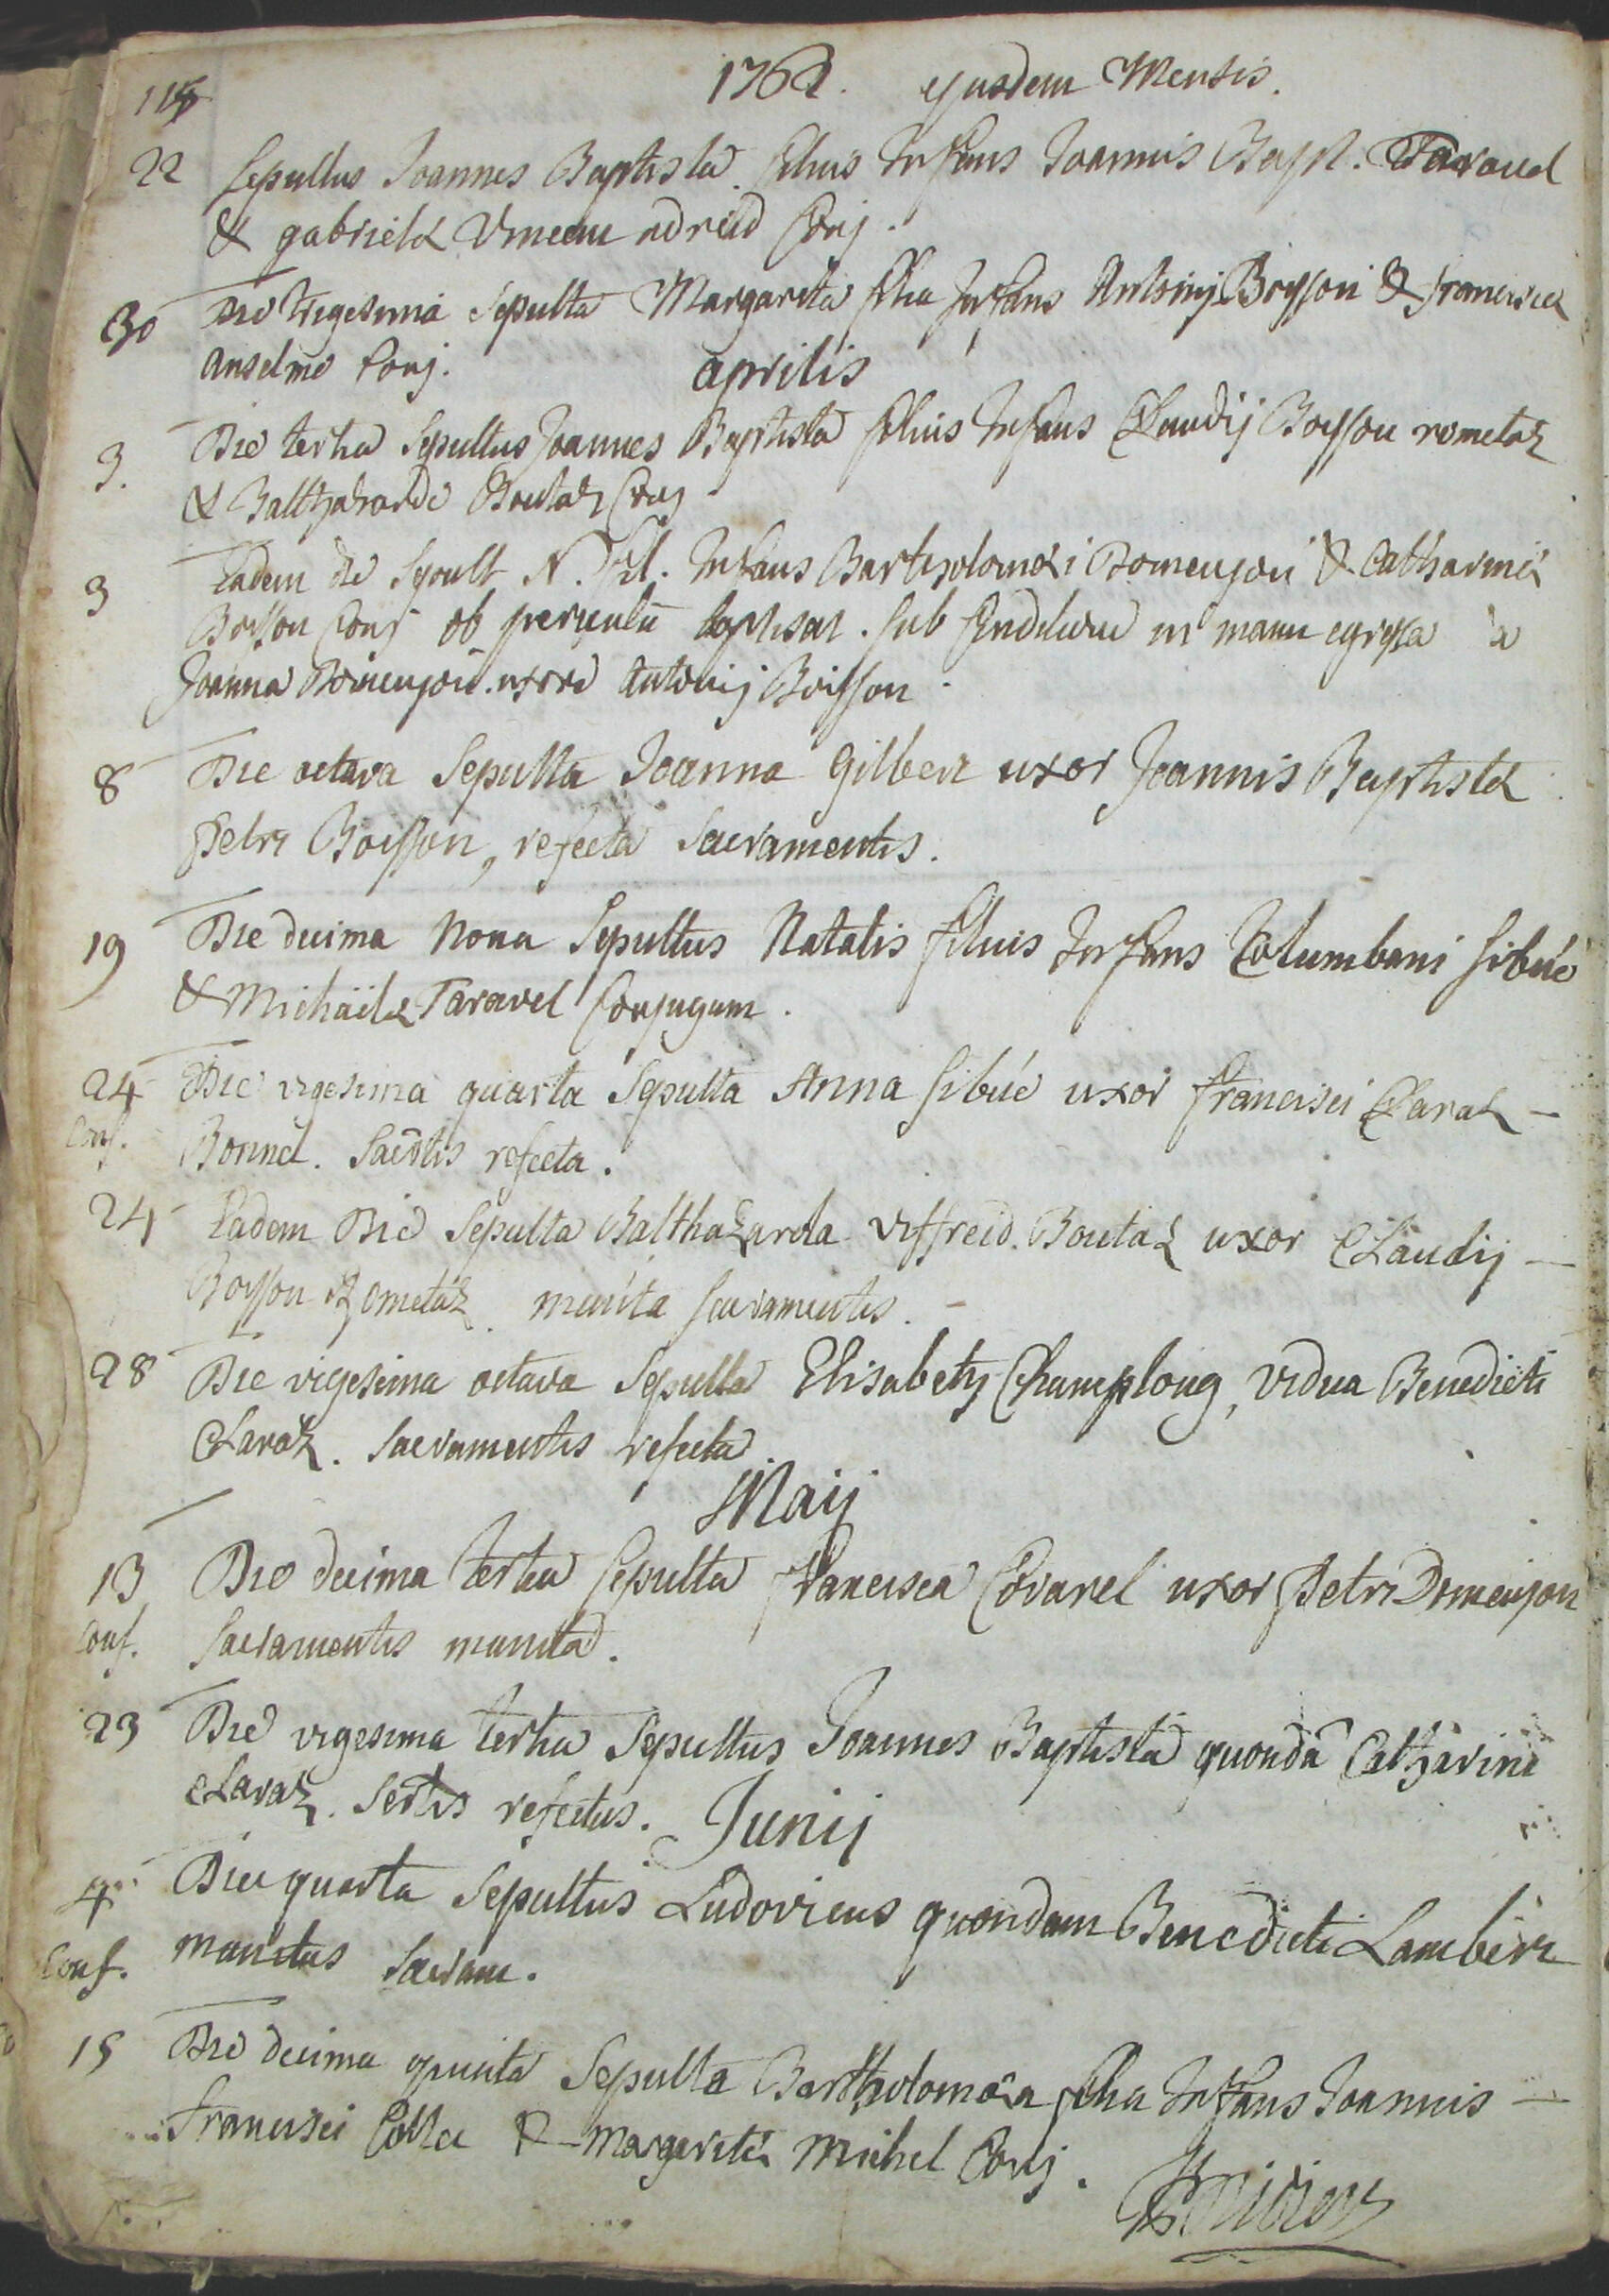 1762. ejusdem Mensis.
22 Sepultus Joannes Baptista filius Infans Joannis Bapt. Taravel
& gabrielæ Conj.
30 Die trigesima Sepulta Margarita filia Infans Antonij Boisson & franciscæ
anselme Conj.
aprilis
3. Die tertia Sepultus Joannes Baptista filius Infans Claudij Boisson rometaz
& Balthazarde Boutaz Conj
3 Eadem die Sepult N. fil. Infans Bartholomæi Domenjon & Catharinæ
Boisson Conj ob periculũ baptisat. sub in manu egressa a
Joanna Domenjon uxore Antonij Boisson.
8 Die octava Sepulta Joanna Gilbert uxor Joannis Baptistæ
Petri Boisson, refecta Sacramentis.
19 Die decima Nona Sepultus Natalis filius Infans Columbani Sibué
& Michäelæ Taravel Conjugum.
24 Die vigesima quarta Sepulta Anna Sibué uxor francisci Claraz -
Conf. Bonnel. refecta.
24 Eadem Die Sepulta Balthazarda Viffreid. Boutaz uxor Claudij -
Boisson Rometaz. munita Sacramentis. -
28 Die vigesima octava Sepulta Elisabeth Champlong, vidua Benedicti
Claraz. Sacramentis refecta.
Maij
13 Die decima tertia Sepulta francisca Covarel uxor Petri Domenjon
Conf. Sacramentis munita.
23 Die vigesima tertia Sepultus Joannes Baptista quondã Catharini
Claraz. refectus. Junij
4 Die quarta Sepultus Ludovicus quondam Benedicti Lambert
Conf. munitus Sacram.
15 Die decima quinta Sepulta Bartholomæa filia Infans Joannis -
Francisci Collet & Margaritæ Michel Conj.